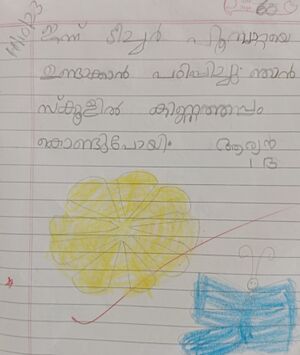 11/10/23
ഇന്ന് ടീച്ചർ പൂമ്പാറ്റയെ
ഉണ്ടാക്കാൻ പഠിപ്പിച്ചു ഞാൻ
സ്കൂളിൽ കിണ്ണത്തപ്പം
കൊണ്ടുപോയി. ആര്യൻ